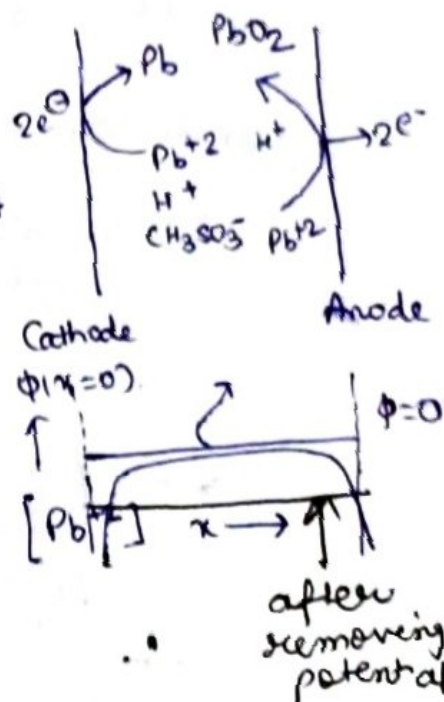 Pb PbO2
2e⊖
Pb+2 H+ → 2e-
H+
CH3SO3- Pb+2
Cathode Anode
ϕ(x=0) ϕ=0
↑
[Pb++] x →
after
removing
potential